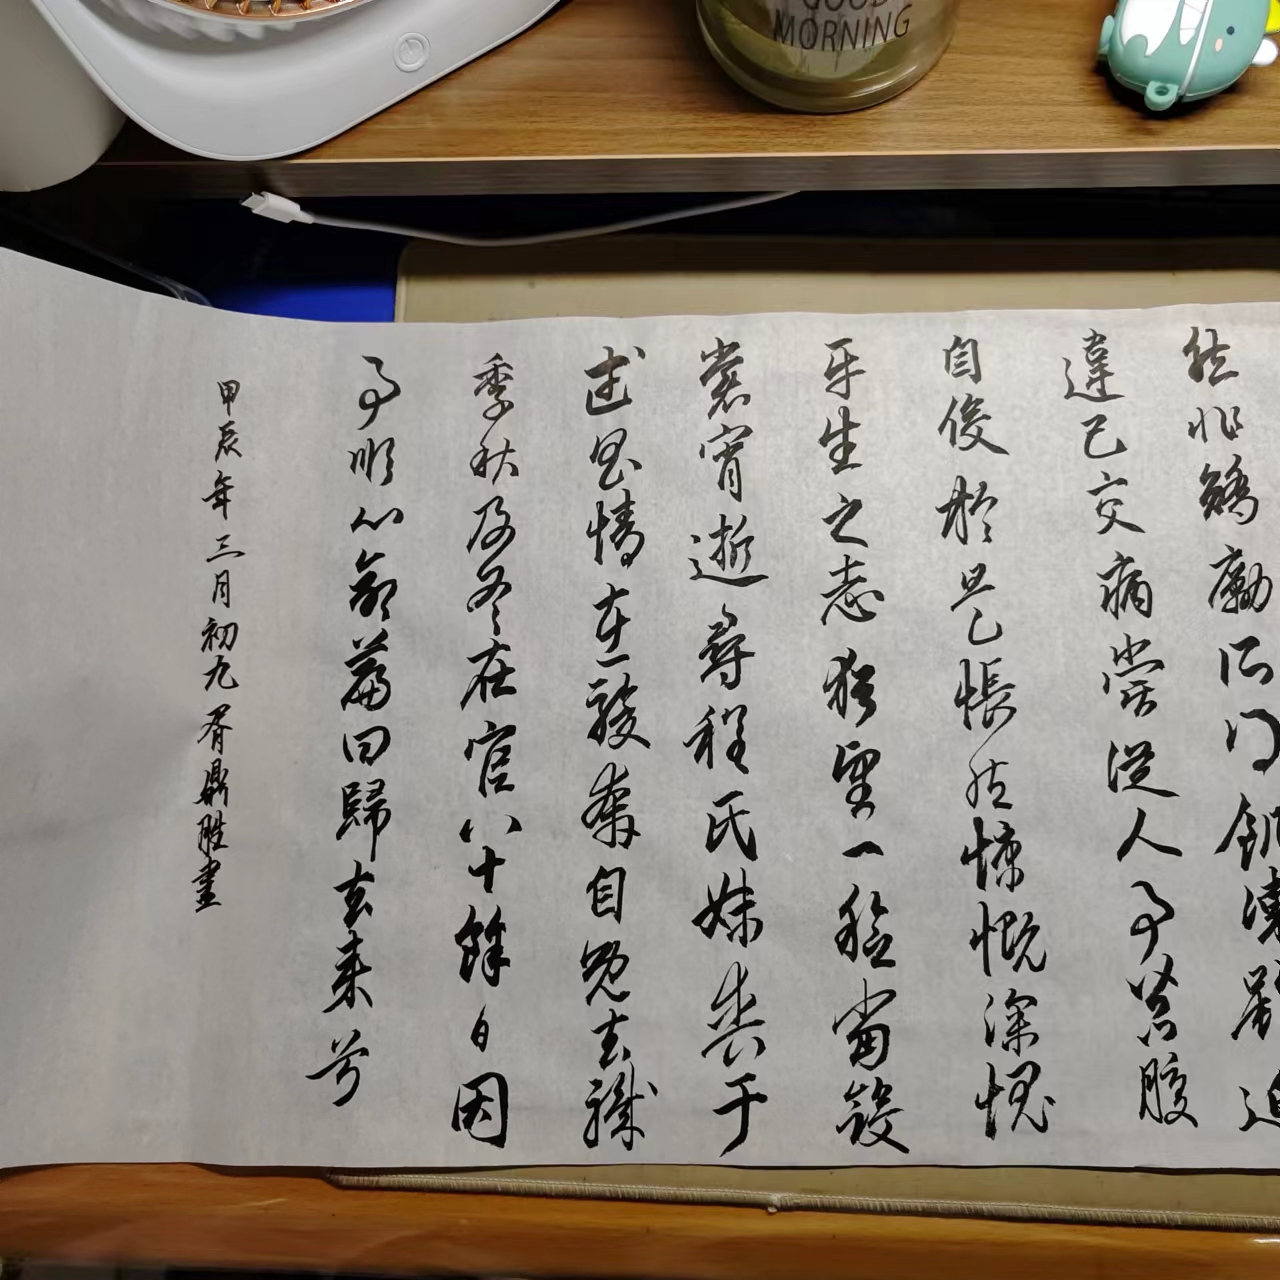 GOOD
MORNING
然非矯勵所得飢凍雖迫
違己交病嘗從人事皆口腹
自役於是悵然慷慨深愧
平生之志猶望一稔當斂
裳宵逝尋程氏妹喪于
武昌情在駿奔自免去職
季秋及冬在官八十餘日因
事順心命篇曰歸去來兮
甲辰年三月初九胥鼎胜書